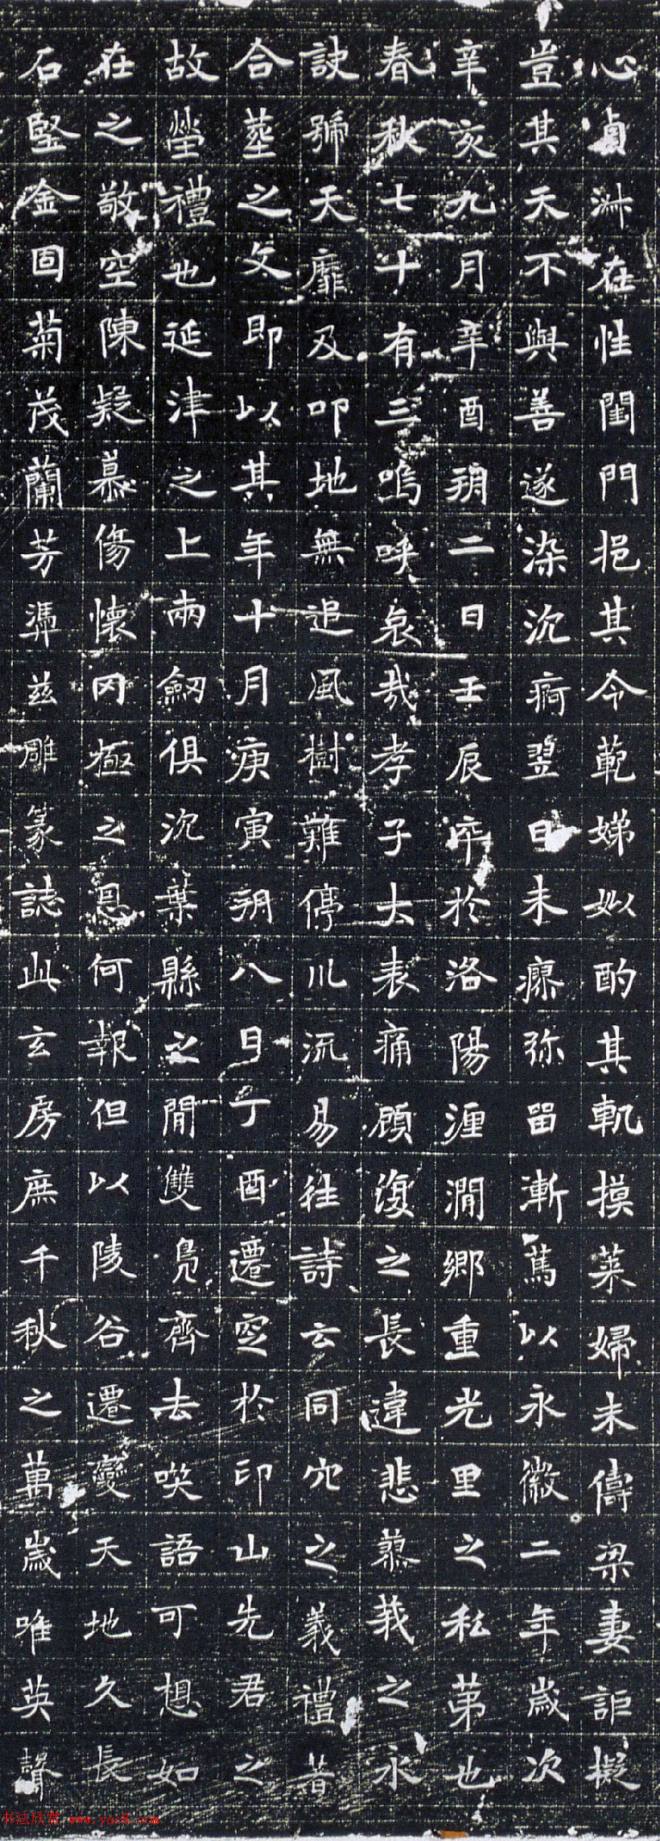 心貞淋在性閨門挹其令範娣姒酌其軌摸萊婦未儔梁妻詎擬
豈其天不與善遂染沉痾翌日未瘳弥留漸篤以永徽二年歲次
辛亥九月辛酉朔二日壬辰卒於洛陽湹澗鄉重光里之私第也
春秋七十有三嗚呼哀哉孝子大表痛顧復之長違悲蓼莪之永
訣號天靡及叩地無追風樹難停川流易往詩云同穴之義禮著
合葬之文即以其年十月庚寅朔八日丁酉遷窆於印山先君之
故塋禮也延津之上兩劒俱沉葉縣之間雙鳧齊去唉語可想如
在之敬空陳疑慕傷懷罔極之恩何報但以陵谷遷變天地久長
石堅金固菊茂蘭芳馮茲雕篆誌此玄房庶千秋之萬歲唯英聲
书法欣赏 www.yac8.com